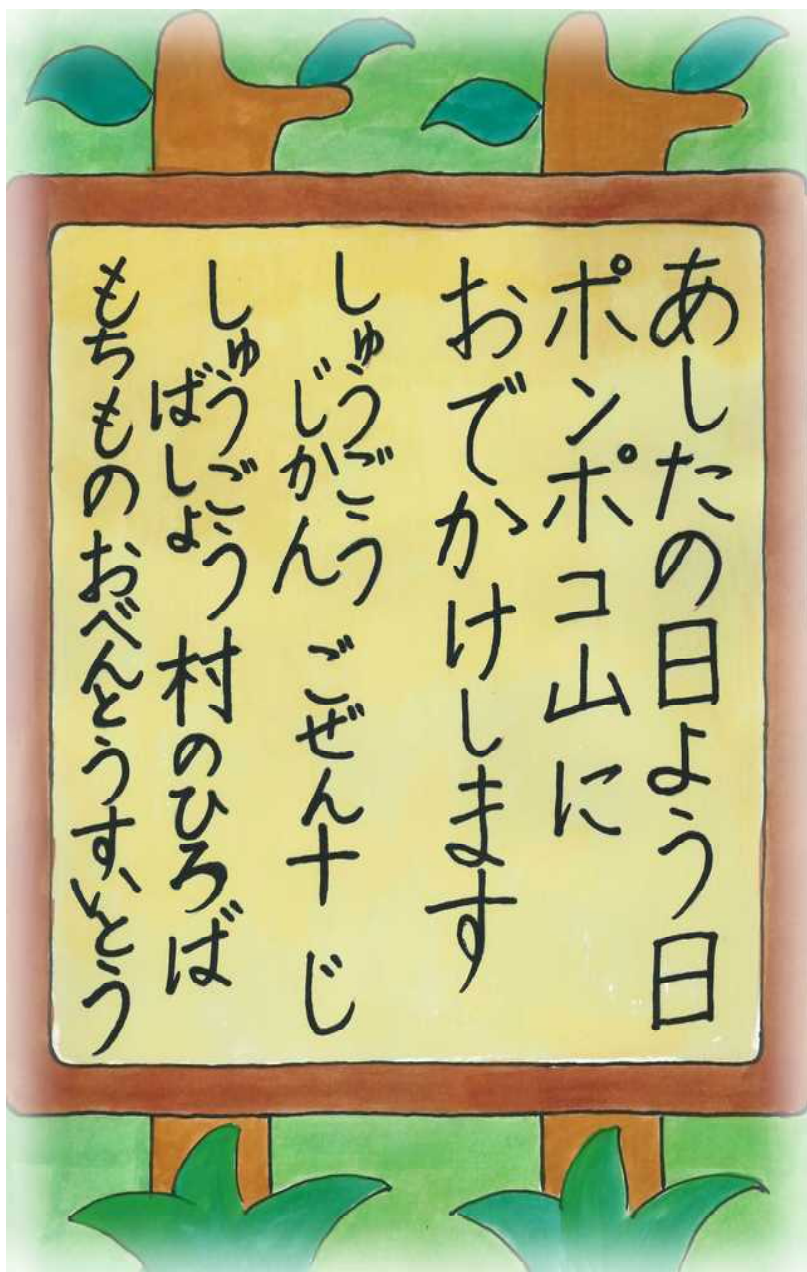 あしたの日よう日
ポンポコ山に
おでかけします
しゅうごう
じかん ごぜん十じ
しゅうごう
ばしょ 村のひろば
もちもの おべんとう すいとう